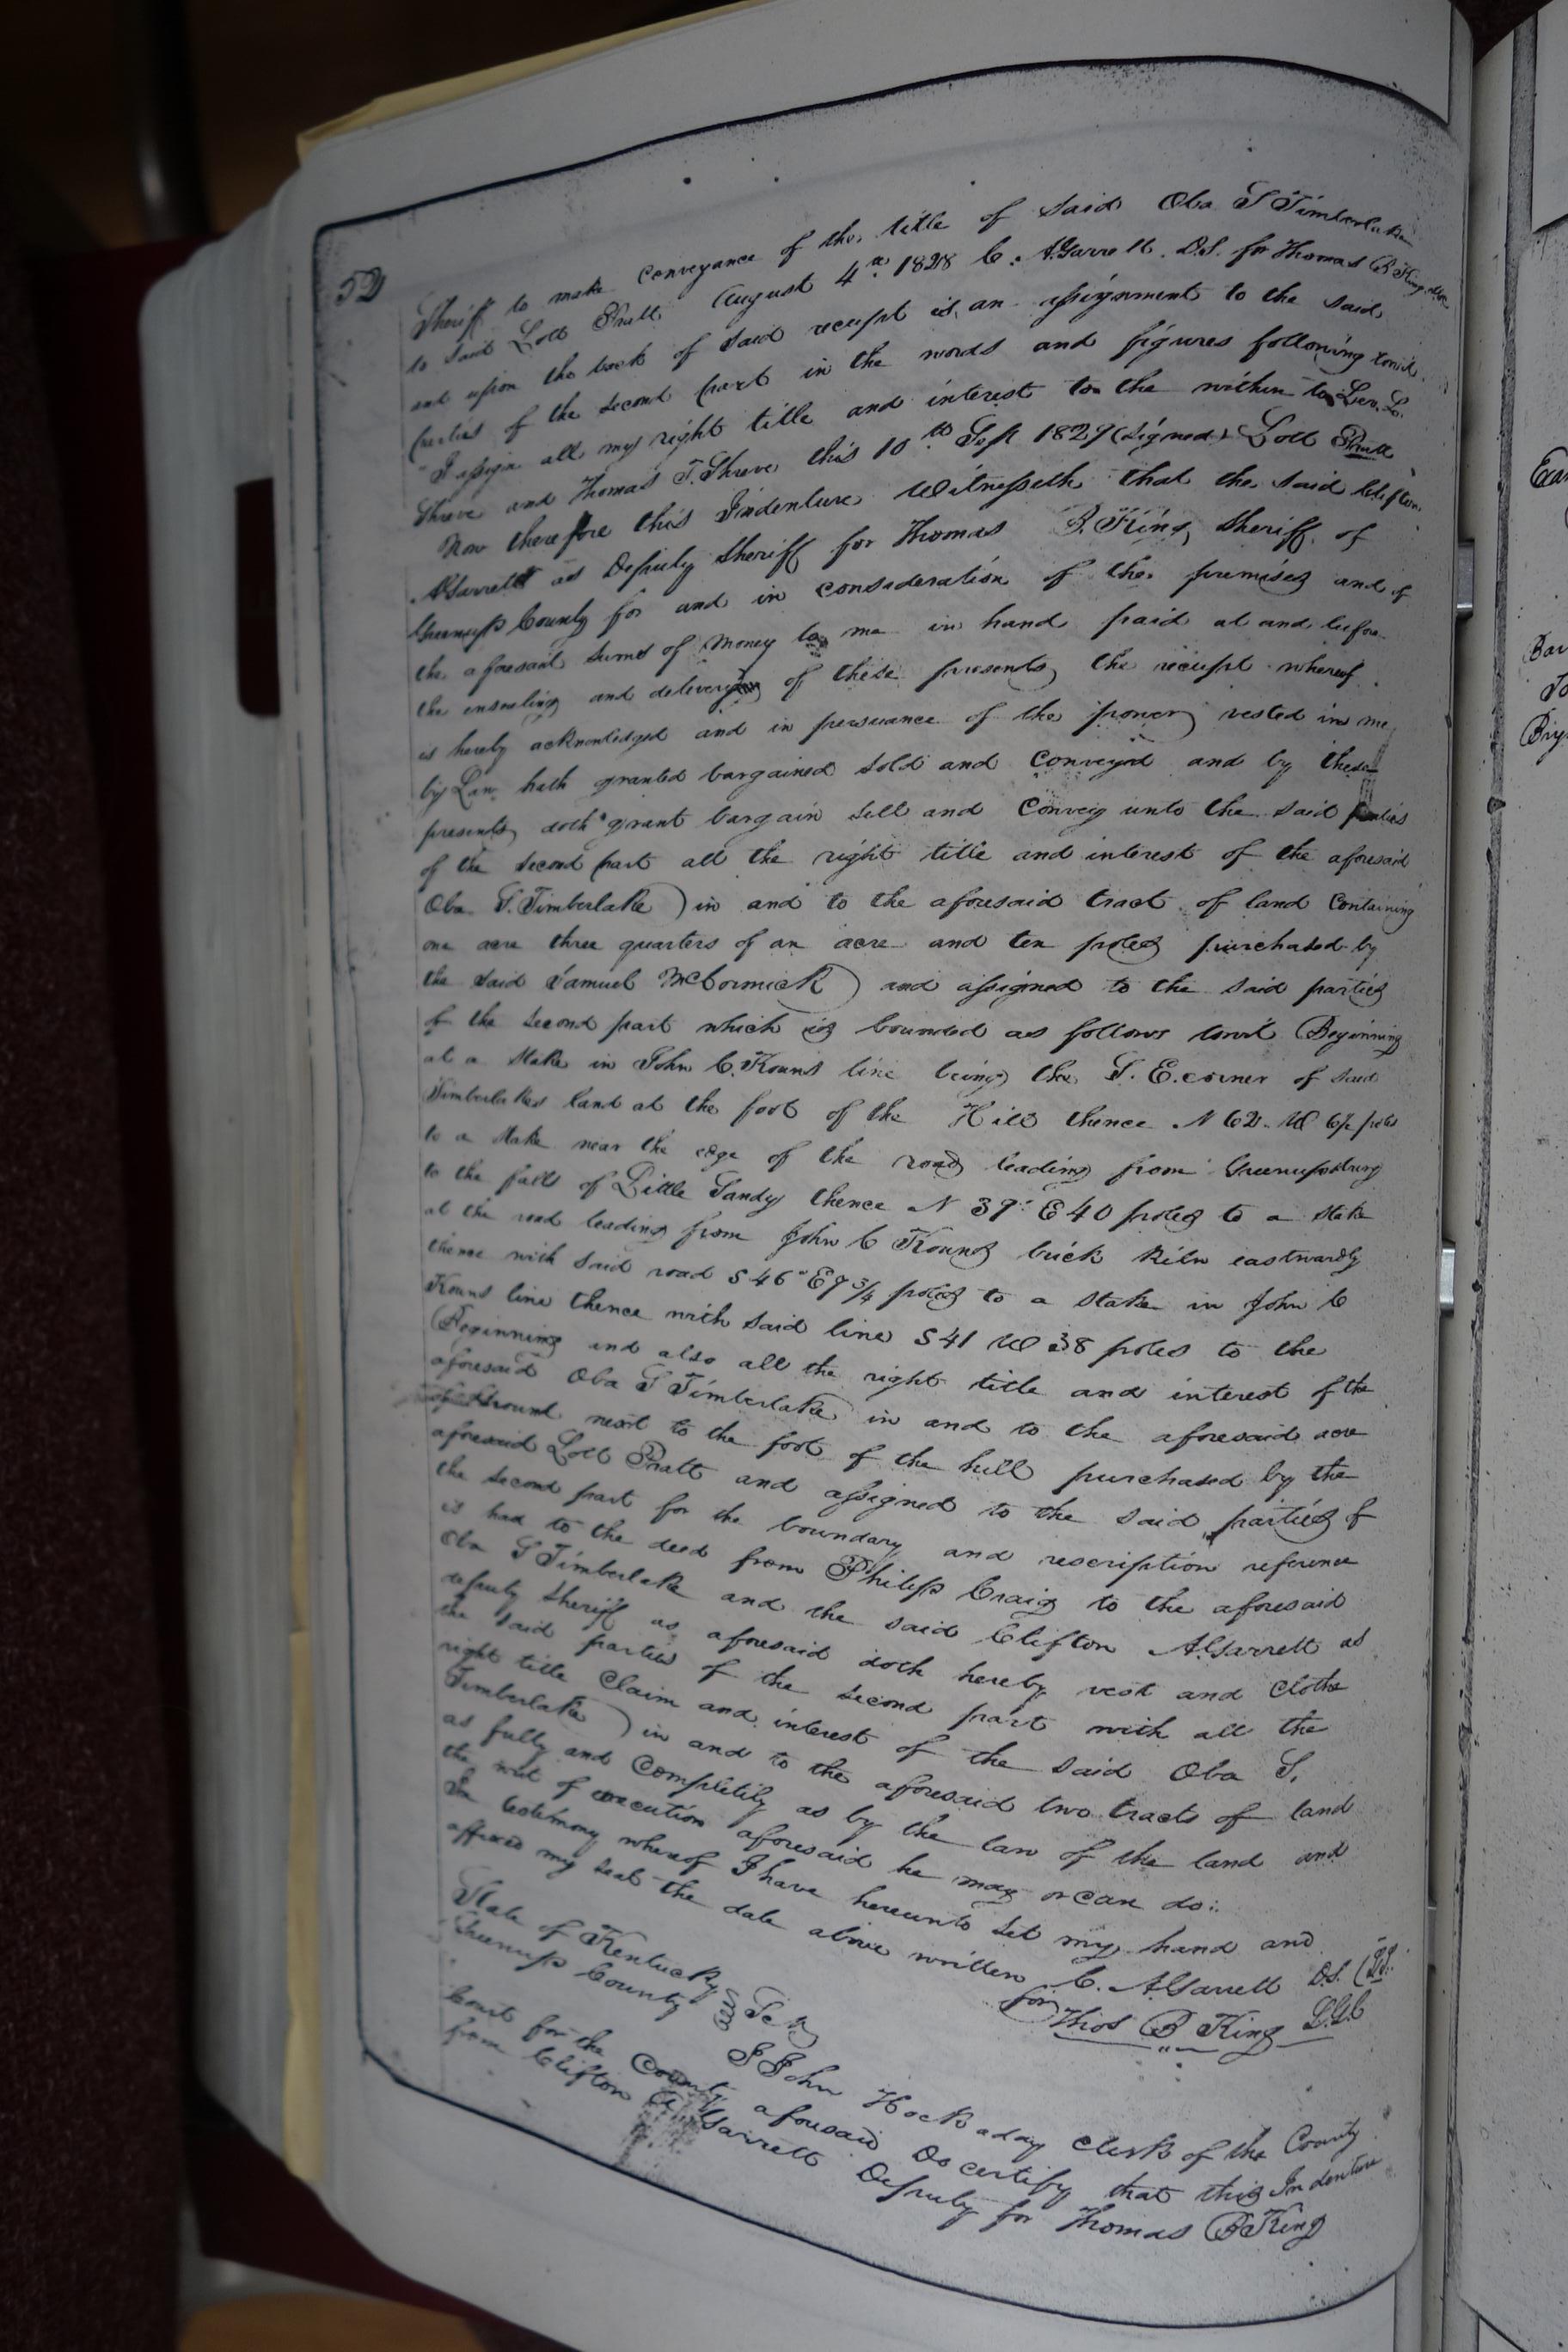 52
Sheriff to make conveyance of the title of said Oba S Timberlake
to said Lott Pratt August 4th 1828 C. A. Garrett D.S. for Thomas B King
and upon the back of said receipt is an assignment to the said
parties of the second part in the words and figures following towit
"I assign all my right title and interest to the within to Lev. L.
Shreve and Thomas T. Shreve this 10th Sept 1829 (signed) Lott Pratt
Now therefore this Indenture Witnesseth that the said Clifton
A Garrett as Deputy Sheriff for Thomas B. King Sheriff of
Greenup County for and in consideration of the premises and of
the aforesaid sums of money to me in hand paid at and before
the ensealing and delivery of these presents the receipt whereof
is hereby acknowledged and in persuance of the power vested in me
by Law hath granted bargained sold and conveyed and by these
presents doth grant bargain sell and convey unto the said parties
of the second part all the right title and interest of the aforesaid
Oba S. Timberlake in and to the aforesaid tract of land containing
one acre three quarters of an acre and ten poles purchased by
the said Samuel McCormick and assigned to the said parties
of the second part which is bounded as follows towit Beginning
at a Stake in John C. Kouns line being the S. E. corner of said
Timberlakes land at the foot of the Hill thence N 62 W poles
to a Stake near the edge of the road leading from Greenupsburg
to the falls of Little Sandy thence N 39° E 40 poles to a stake
at the road leading from John C Kouns brick kiln eastwardly
thence with said road S 46° E 9 3/4 poles to a stake in John C
Kouns line thence with said line S 41 W 38 poles to the
Beginning and also all the right title and interest of the
aforesaid Oba S Timberlake in and to the aforesaid acre
of Ground next to the foot of the hill purchased by the
aforesaid Lott Pratt and assigned to the said parties of
the second part for the boundary and rescription reference
is had to the deed from Philip Craig to the aforesaid
Oba S Timberlake and the said Clifton A. Garrett as
deputy Sheriff as aforesaid doth hereby vest and clothe
the said parties of the second part with all the
right title Claim and interest of the said Oba S.
Timberlake in and to the aforesaid two tracts of land
as fully and completily as by the law of the land and
the writ of execution aforesaid he may or can do:
In testimony whereof I have hereunto set my hand and
affixed my seal the date above written C. A Garrett D.S.
for Thos B King S.G.C
State of Kentucky
Greenup County Sct
I John Hockaday Clerk of the County
Court for the County aforesaid Do certify that this Indenture
from Clifton A Garrett Deputy for Thomas B King